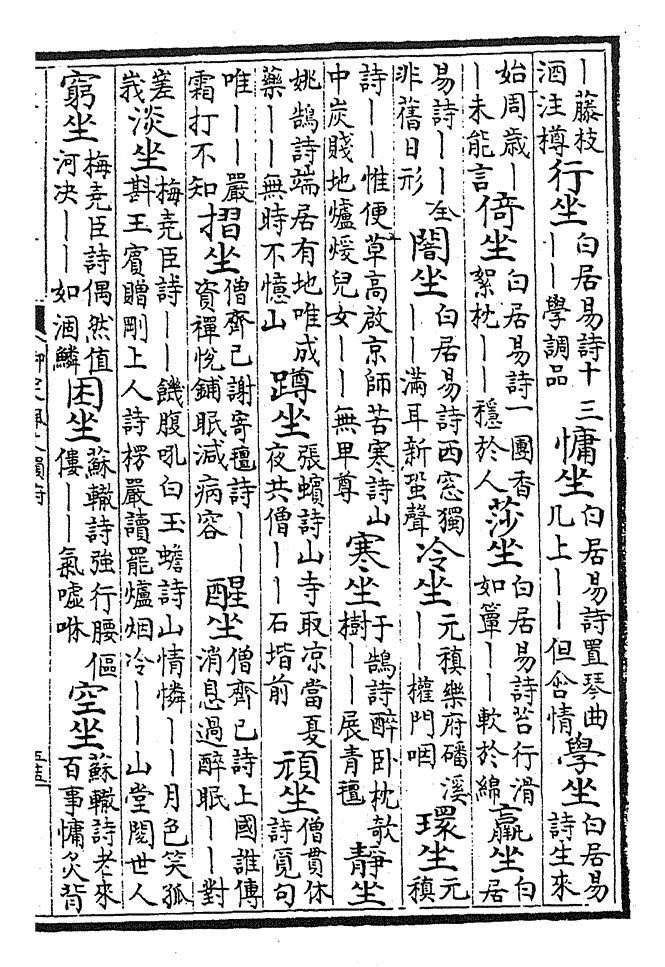 ｜藤枝酒注樽行坐白居易詩十三｜｜學調品慵坐白居易詩置琴曲几上｜｜但含情學坐白居易詩生來
始周歲｜｜未能言倚坐白居易詩一團香絮枕｜｜穩於人莎坐白居易詩苔行滑如簟｜｜軟於綿羸坐白居
易詩｜｜全非舊日形闇坐白居易詩西窓獨｜｜滿耳新蛩聲冷坐元稹樂府磻溪｜｜權門咽環坐元稹
詩｜｜惟便草高啟京師苦寒詩山中炭賤地爐煖兒女｜｜無卑尊寒坐于鵠詩醉卧枕欹樹｜｜展青氊靜坐
姚鵠詩端居有地唯成藥｜｜無時不憶山蹲坐張蠙詩山寺取凉當夏夜共僧｜｜石堦前頑坐僧貫休詩覓句
唯｜｜嚴霜打不知摺坐僧齊己謝寄氊詩｜｜資禪悅鋪眠減病容醒坐僧齊己詩上國誰傳消息過醉眠｜｜對
嵳峩淡坐梅堯臣詩｜｜饑腹吼白玉蟾詩山情憐｜｜月色笑孤斟王賓贈剛上人詩楞嚴讀罷爐烟冷｜｜山堂閱世人
窮坐梅堯臣詩偶然值河决｜｜如涸鱗困坐蘇轍詩強行腰傴僂｜｜氣噓咻空坐蘇轍詩老來百事慵炙背